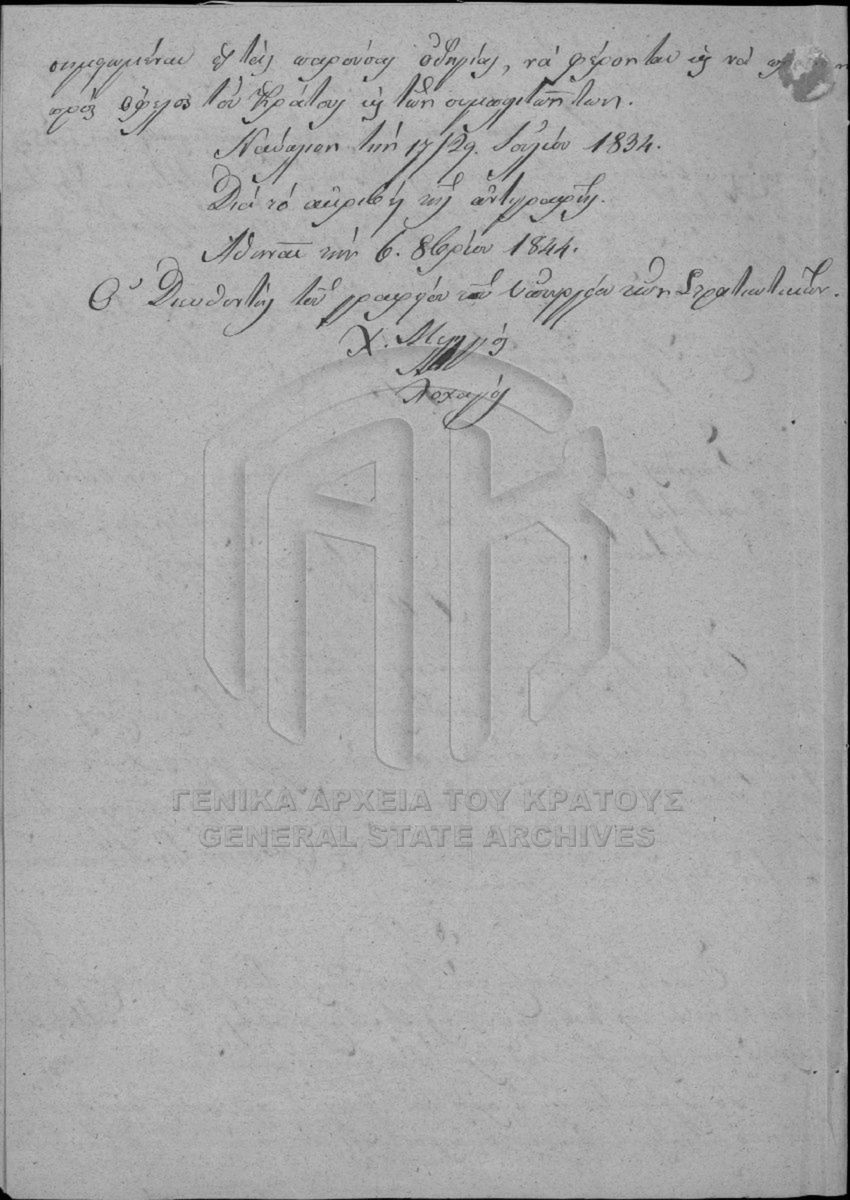 σημειωμέναι εἰς τὰς παρούσας ὁδηγίας, νὰ φέρονται εἰς νὰ
πρὸς ὄφελος τοῦ Κράτους εἰς τῶν συμπολιτῶν των.
Ναύπλιον τὴν 17/29. Ἰουλίου 1834.
Διὰ τὸ ἀκριβὲς τῆς ἀντιγραφῆς.
Ἀθῆναι τὴν 6. 8βρίου 1844.
Ὁ Διευθυντὴς τοῦ γραφείου τοῦ Ὑπουργείου τῶν Στρατιωτικῶν.
Χ.
Λοχαγός
ΓΕΝΙΚΑ ΑΡΧΕΙΑ ΤΟΥ ΚΡΑΤΟΥΣ
GENERAL STATE ARCHIVES